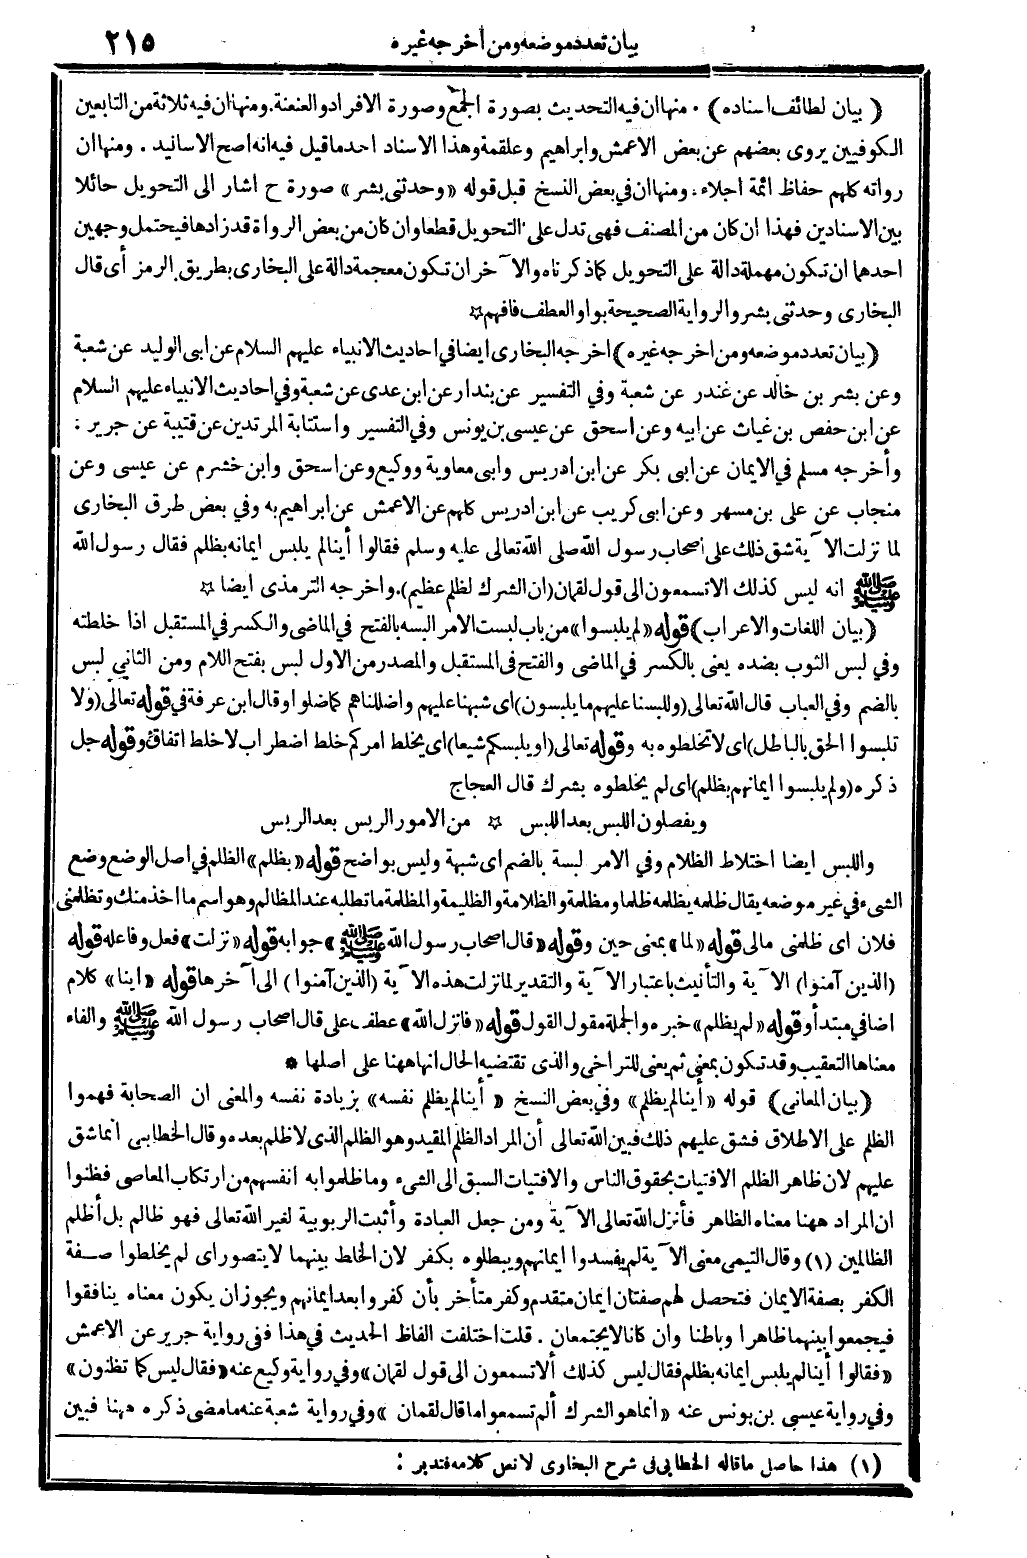 بيان تعدد موضعه ومن أخرجه غيره ٢١٥
( بيان لطائف اسناده ) . منها ان فيه التحديث بصورة الجمع وصورة الافراد والعنعنة . ومنها ان فيه ثلاثة من التابعين
الكوفيين يروى بعضهم عن بعض الاعمش وابراهيم وعلقمة وهذا الاسناد احد ما قيل فيه انه اصح الاسانيد . ومنها ان
رواته كلهم حفاظ ائمة اجلاء . ومنها ان في بعض النسخ قبل قوله «وحدثنى بشر» صورة ح اشار الى التحويل حائلا
بين الاسنادين فهذا ان كان من المصنف فهى تدل على التحويل قطعا وان كان من بعض الرواة قد زادها فيحتمل وجهين
احدهما ان تكون مهملة دالة على التحويل كما ذكرناه والآخر ان تكون معجمة دالة على البخارى بطريق الرمز أى قال
البخارى وحدثنى بشر والرواية الصحيحة بواو العطف فافهم ☆
( بيان تعدد موضعه ومن اخرجه غيره ) اخرجه البخارى ايضا في احاديث الانبياء عليهم السلام عن ابى الوليد عن شعبة
وعن بشر بن خالد عن غندر عن شعبة وفي التفسير عن بندار عن ابن عدى عن شعبة وفي احاديث الانبياء عليهم السلام
عن ابن حفص بن غياث عن ابيه وعن اسحق عن عيسى بن يونس وفي التفسير واستتابة المرتدين عن قتيبة عن جرير :
وأخرجه مسلم في الايمان عن ابى بكر عن ابن ادريس وابى معاوية ووكيع وعن اسحق وابن خشرم عن عيسى وعن
منجاب عن على بن مسهر وعن ابى كريب عن ابن ادريس كلهم عن الاعمش عن ابراهيم به وفي بعض طرق البخارى
لما نزلت الآية شق ذلك على أصحاب رسول الله صلى الله تعالى عليه وسلم فقالوا أينا لم يلبس ايمانه بظلم فقال رسول الله
ﷺ انه ليس كذلك الا تسمعون الى قول لقمان (ان الشرك لظلم عظيم) . واخرجه الترمذى ايضا ☆
( بيان اللغات والاعراب ) قوله «لم يلبسوا» من باب لبست الامر البسه بالفتح في الماضى والكسر في المستقبل اذا خلطته
وفي لبس الثوب بضده يعنى بالكسر في الماضى والفتح فى المستقبل والمصدر من الاول لبس بفتح اللام ومن الثانى لبس
بالضم وفي العباب قال الله تعالى (وللبسنا عليهم ما يلبسون) اى شبهنا عليهم واضللناهم كما ضلوا وقال ابن عرفة في قوله تعالى (ولا
تلبسوا الحق بالباطل) اى لا تخلطوه به وقوله تعالى (او يلبسكم شيعا) اى يخلط امركم خلط اضطراب لا خلط اتفاق وقوله جل
ذكره (ولم يلبسوا ايمانهم بظلم) اى لم يخلطوه بشرك قال العجاج
ويفصلون اللبس بعد اللبس ☆ من الامور الربس بعد الربس
واللبس ايضا اختلاط الظلام وفي الامر لبسة بالضم اى شبهة وليس بواضح قوله «بظلم» الظلم في اصل الوضع وضع
الشىء في غير موضعه يقال ظلمه يظلمه ظلما ومظلمة والظلامة والظليمة والمظلمة ما تطلبه عند المظالم وهو اسم ما اخذ منك وتظلمنى
فلان اى ظلمنى مالى قوله «لما» بمعنى حين وقوله «قال اصحاب رسول الله ﷺ» جوابه قوله «نزلت» فعل وفاعله قوله
(الذين آمنوا) الآية والتأنيث باعتبار الآية والتقدير لما نزلت هذه الآية (الذين آمنوا) الى آخرها قوله «اينا» كلام
اضافي مبتدأ وقوله «لم يظلم» خبره والجملة مقول القول قوله «فانزل الله» عطف على قال اصحاب رسول الله ﷺ والفاء
معناها التعقيب وقد تكون بمعنى ثم يعنى للتراخى والذى تقتضيه الحال انها ههنا على اصلها *
( بيان المعانى ) قوله «أينا لم يظلم» وفي بعض النسخ «أينا لم يظلم نفسه» بزيادة نفسه والمعنى ان الصحابة فهموا
الظلم على الاطلاق فشق عليهم ذلك فبين الله تعالى أن المراد الظلم المقيد وهو الظلم الذى لا ظلم بعده وقال الخطابى انما شق
عليهم لان ظاهر الظلم الافتيات بحقوق الناس والافتيات السبق الى الشىء وما ظلموا به انفسهم من ارتكاب المعاصى فظنوا
ان المراد ههنا معناه الظاهر فأنزل الله تعالى الآية ومن جعل العبادة وأثبت الربوبية لغير الله تعالى فهو ظالم بل أظلم
الظالمين (١) وقال التيمى معنى الآية لم يفسدوا ايمانهم ويبطلوه بكفر لان الخلط بينهما لا يتصور اى لم يخلطوا صفة
الكفر بصفة الايمان فتحصل لهم صفتان ايمان متقدم وكفر متأخر بأن كفروا بعد ايمانهم ويجوز ان يكون معناه ينافقوا
فيجمعوا بينهما ظاهرا وباطنا وان كانا لا يجتمعان . قلت اختلفت الفاظ الحديث في هذا ففى رواية جرير عن الاعمش
«فقالوا أينا لم يلبس ايمانه بظلم فقال ليس كذلك ألا تسمعون الى قول لقمان» وفي رواية وكيع عنه «فقال ليس كما تظنون»
وفي رواية عيسى بن يونس عنه «انما هو الشرك ألم تسمعوا ما قال لقمان» وفي رواية شعبة عنه ما مضى ذكره ههنا فبين
(١) هذا حاصل ما قاله الخطابى فى شرح البخارى لا نص كلامه فتدبر :